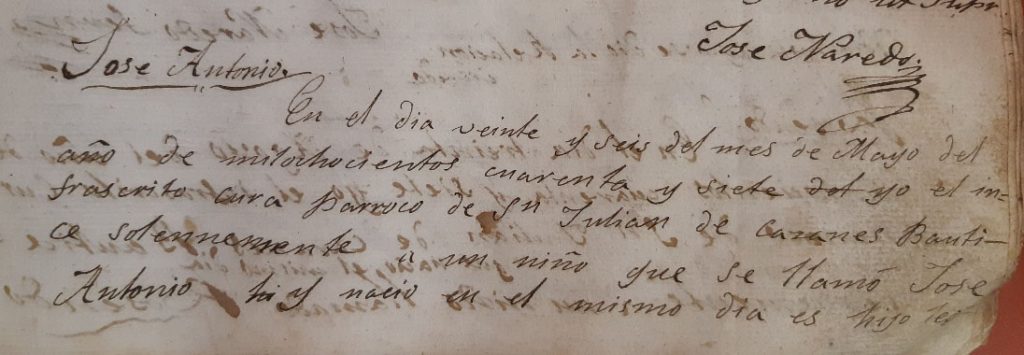 no ut supr
Jose Naredo
Jose Antonio.
En el dia veinte y seis del mes de Mayo del
año de milochocientos cuarenta y siete yo el in=
frascrito cura Parroco de Sn Julian de cazanes Bauti-
ce solennemente a un niño que se llamó Jose
Antonio y nacio en el mismo dia es hijo